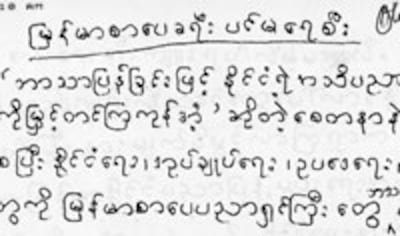 10 AM
မြန်မာစာပေခရီး ပင်မရေစီး
“ဘာသာပြန်ခြင်းဖြင့် နိုင်ငံရဲ့ အသိပညာ
ကိုမြှင့်တင်ကြကုန်အံ့ ’ ဆိုတဲ့ စေတနာနဲ့
စပြီး နိုင်ငံရေး၊ အုပ်ချုပ်ရေး ၊ ဥပဒေရေး
တွေကို မြန်မာစာပေပညာရှင်ကြီး တွေ